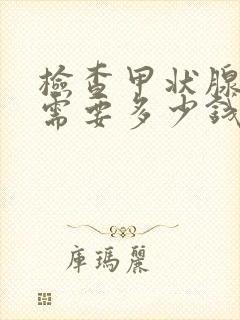 檢查甲状腺
需要多少錢
庫瑪麗